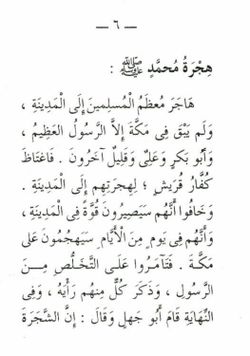 — ٦ —
هِجْرَةُ مُحَمَّدٍ ﷺ :
هَاجَرَ مُعظَمُ الْمُسلِمينَ إِلَى الْمَدِينَةِ ،
وَلَم يَبْقَ فِى مَكَّةَ إِلاَّ الرَّسُولُ العَظِيمُ ،
وَأَبُو بَكرٍ وَعَلِىٌّ وَقَلِيلٌ آخَرُونَ . فَاغتَاظَ
كُفَّارُ قُرَيشٍ ؛ لِهِجرَتِهِم إِلَى الْمَدِينَةِ .
وَخَافُوا أَنَّهُم سَيَصِيرُونَ قُوَّةً فِى الْمَدِينَةِ ،
وَأَنَّهُم فِى يَومٍ مِنَ الْأَيَّامِ سَيَهجُمُونَ عَلَى
مَكَّةَ . فَتَآمَرُوا عَلَى التَّخَلُّصِ مِنَ
الرَّسُولِ ، وَذَكَرَ كُلٌّ مِنهُم رَأْيَهُ ، وَفِى
النِّهَايَةِ قَامَ أَبُو جَهلٍ وَقَالَ : إِنَّ الشَّجَرَةَ